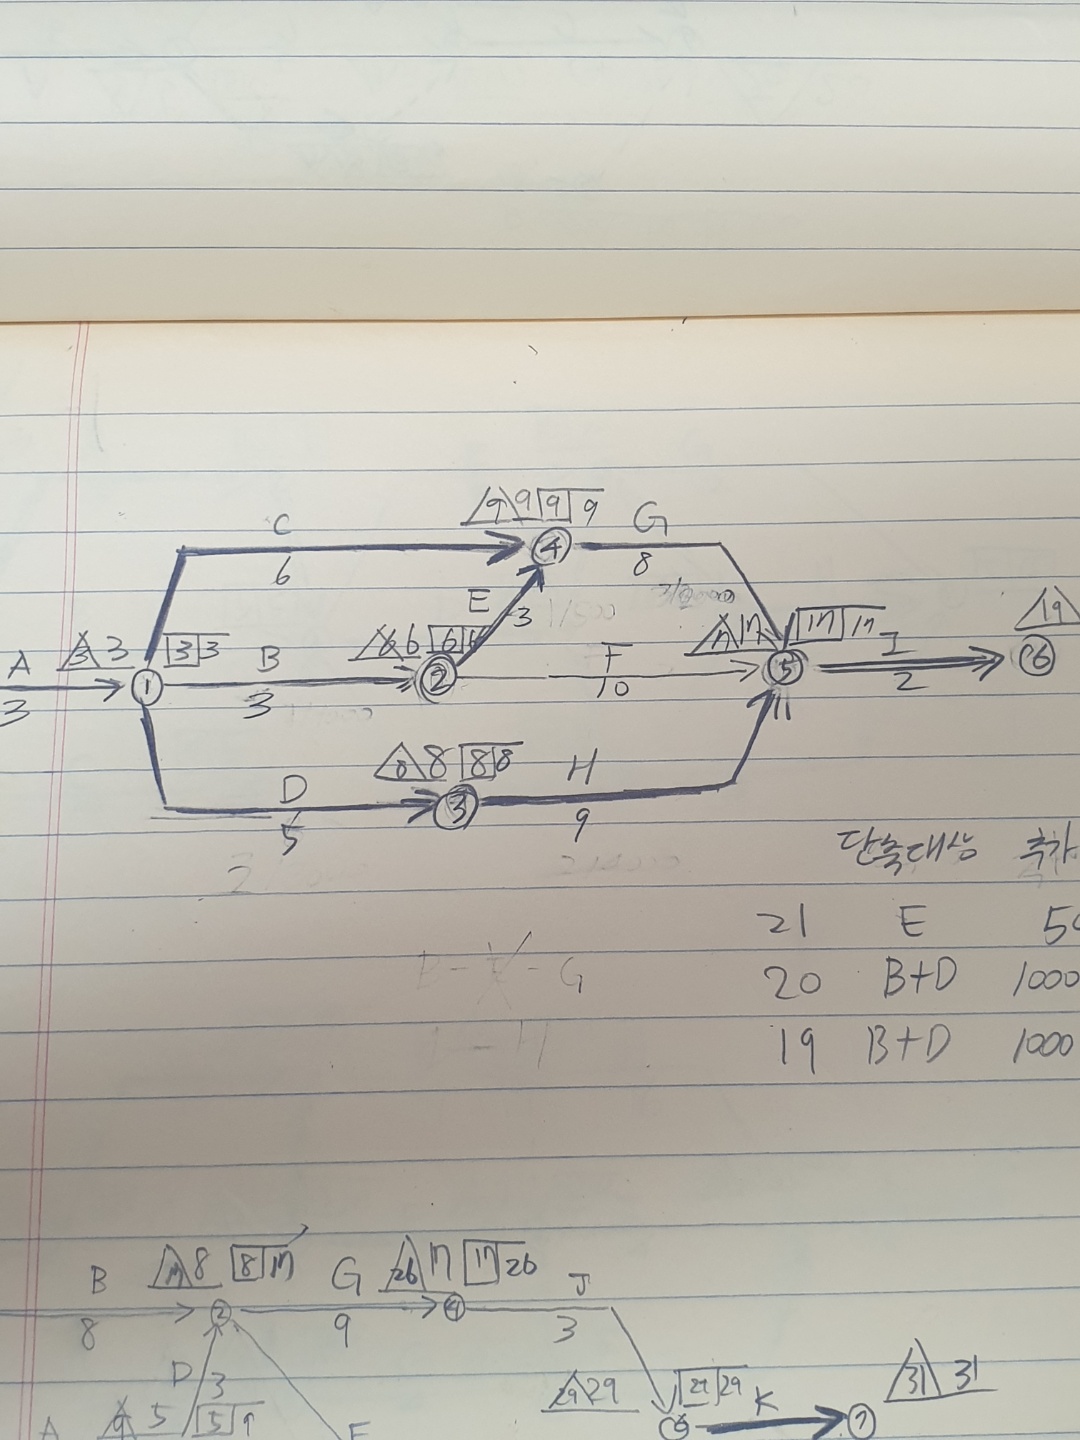 C
9 9 9 9
G
6
4
8
E
3
A 3 3 3 3
B
6 6 6
F
17 17 17
I
19
1
2
5
6
3
3
10
2
11
8 8 8 8
H
D
3
5
9
단축대상 추가
21 E 50
20 B+D 1000
19 B+D 1000
B - - G
B 8 8 17 G 26 17 17 26 J
2 4
8 9 3
D 3 29 29 29 29 K 31 31
A 9 5 5 9 F 6 7